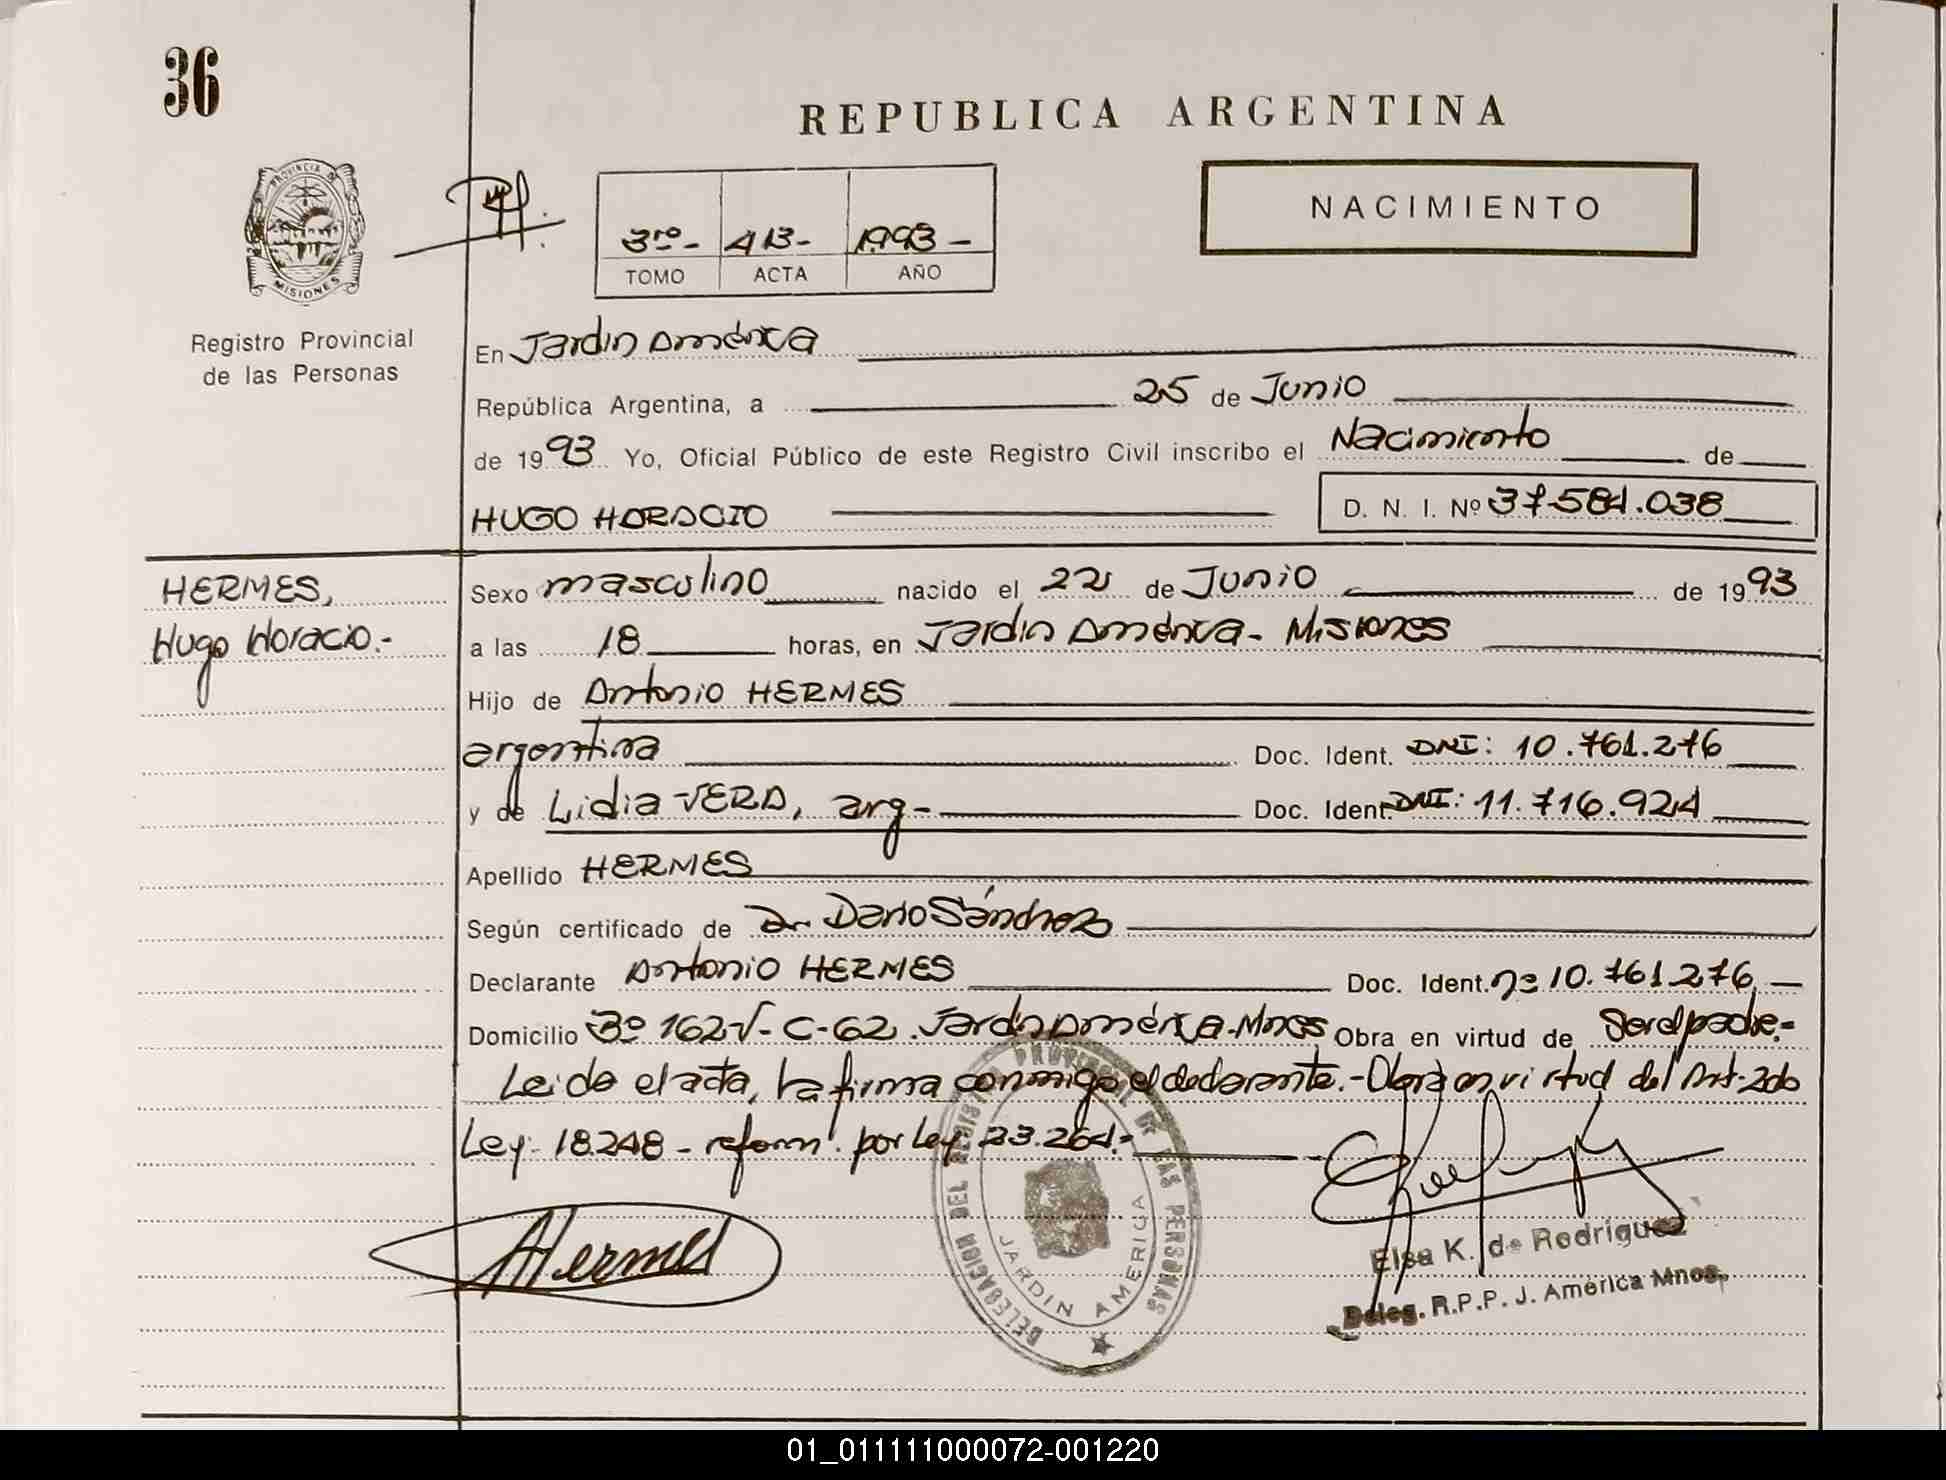 36
REPUBLICA ARGENTINA
PROVINCIA DE
MISIONES
Registro Provincial
de las Personas
3ro- 413- 1993-
TOMO ACTA AÑO
NACIMIENTO
En Jardin América
República Argentina, a 25 de Junio
de 1993 Yo, Oficial Público de este Registro Civil inscribo el Nacimiento de
HUGO HORACIO D. N. I. Nº 37.584.038
HERMES,
Hugo Horacio.-
Sexo masculino nacido el 22 de Junio de 1993
a las 18 horas, en Jardin América - Misiones
Hijo de Antonio HERMES
argentina Doc. Ident. DNI: 10.761.276
y de Lidia VERA, arg- Doc. Ident. DNI: 11.716.924
Apellido HERMES
Según certificado de Dr Dario Sánchez
Declarante Antonio HERMES Doc. Ident. nº 10.761.276.-
Domicilio Bº 162 V- C-62. Jardin América-Mnes Obra en virtud de Ser el padre.-
Leida el acta, la firma conmigo el declarante.- Obra en virtud del Art-2do
Ley- 18.248 - reform. por Ley 23.264.-
AHermes
DELEGACION DEL REGISTRO PROVINCIAL DE LAS PERSONAS
JARDIN AMERICA
Elsa K. de Rodriguez
Deleg. R.P.P. J. América Mnes.
01_011111000072-001220